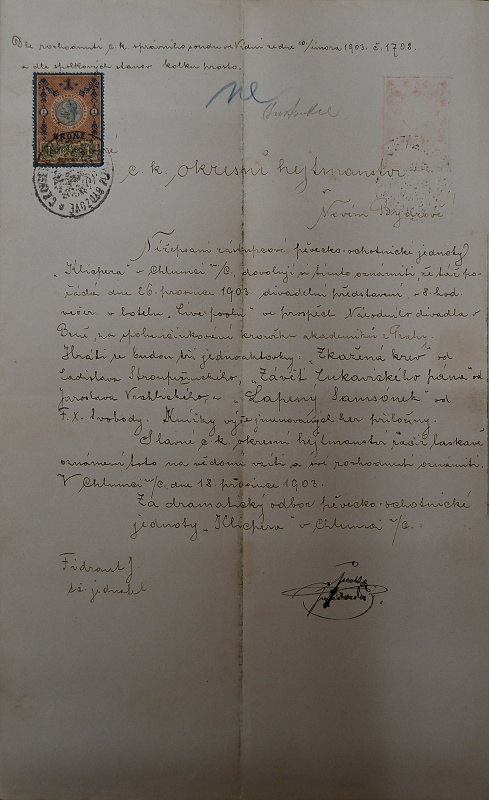 Dle rozhodnutí c. k. správního soudu ve Vídni ze dne 10/února 1903. č. 1708.
a dle spolkových stanov kolku prosto.
ne
1
KRONE
c. k. okresní hejtmanství
v
Novém Bydžově.
Nížepsaní zástupcové pěvecko-ochotnické jednoty
"Klicpera" v Chlumci n/C. dovolují si tímto oznámiti že táž po-
řádá dne 26. prosince 1903. divadelní představení v 8. hod.
večer. v hotelu "Liverpoolu" ve prospěch Národního divadla v
Brně, za spoluúčinkování kroužku akademiků z Prahy.
Hráti se budou tři jednoaktovky: "Zkažená krev" od
Ladislava Stroupežnického, "Závět Lukavického pána" od
Jaroslava Vrchlického, a "Lapený Samsonek" od
F. X. Svobody. Knížky výše jmenovaných her přiloženy.
Slavné c. k. okresní hejtmanství račiž laskavě
oznámení toto na vědomí vzíti a své rozhodnutí oznámiti.
V Chlumci n/C. dne 18. prosince 1903.
Za dramatický odbor pěvecko-ochotnické
jednoty "Klicpera" v Chlumci n/C.:
J.
t. č. jednatel
předseda.